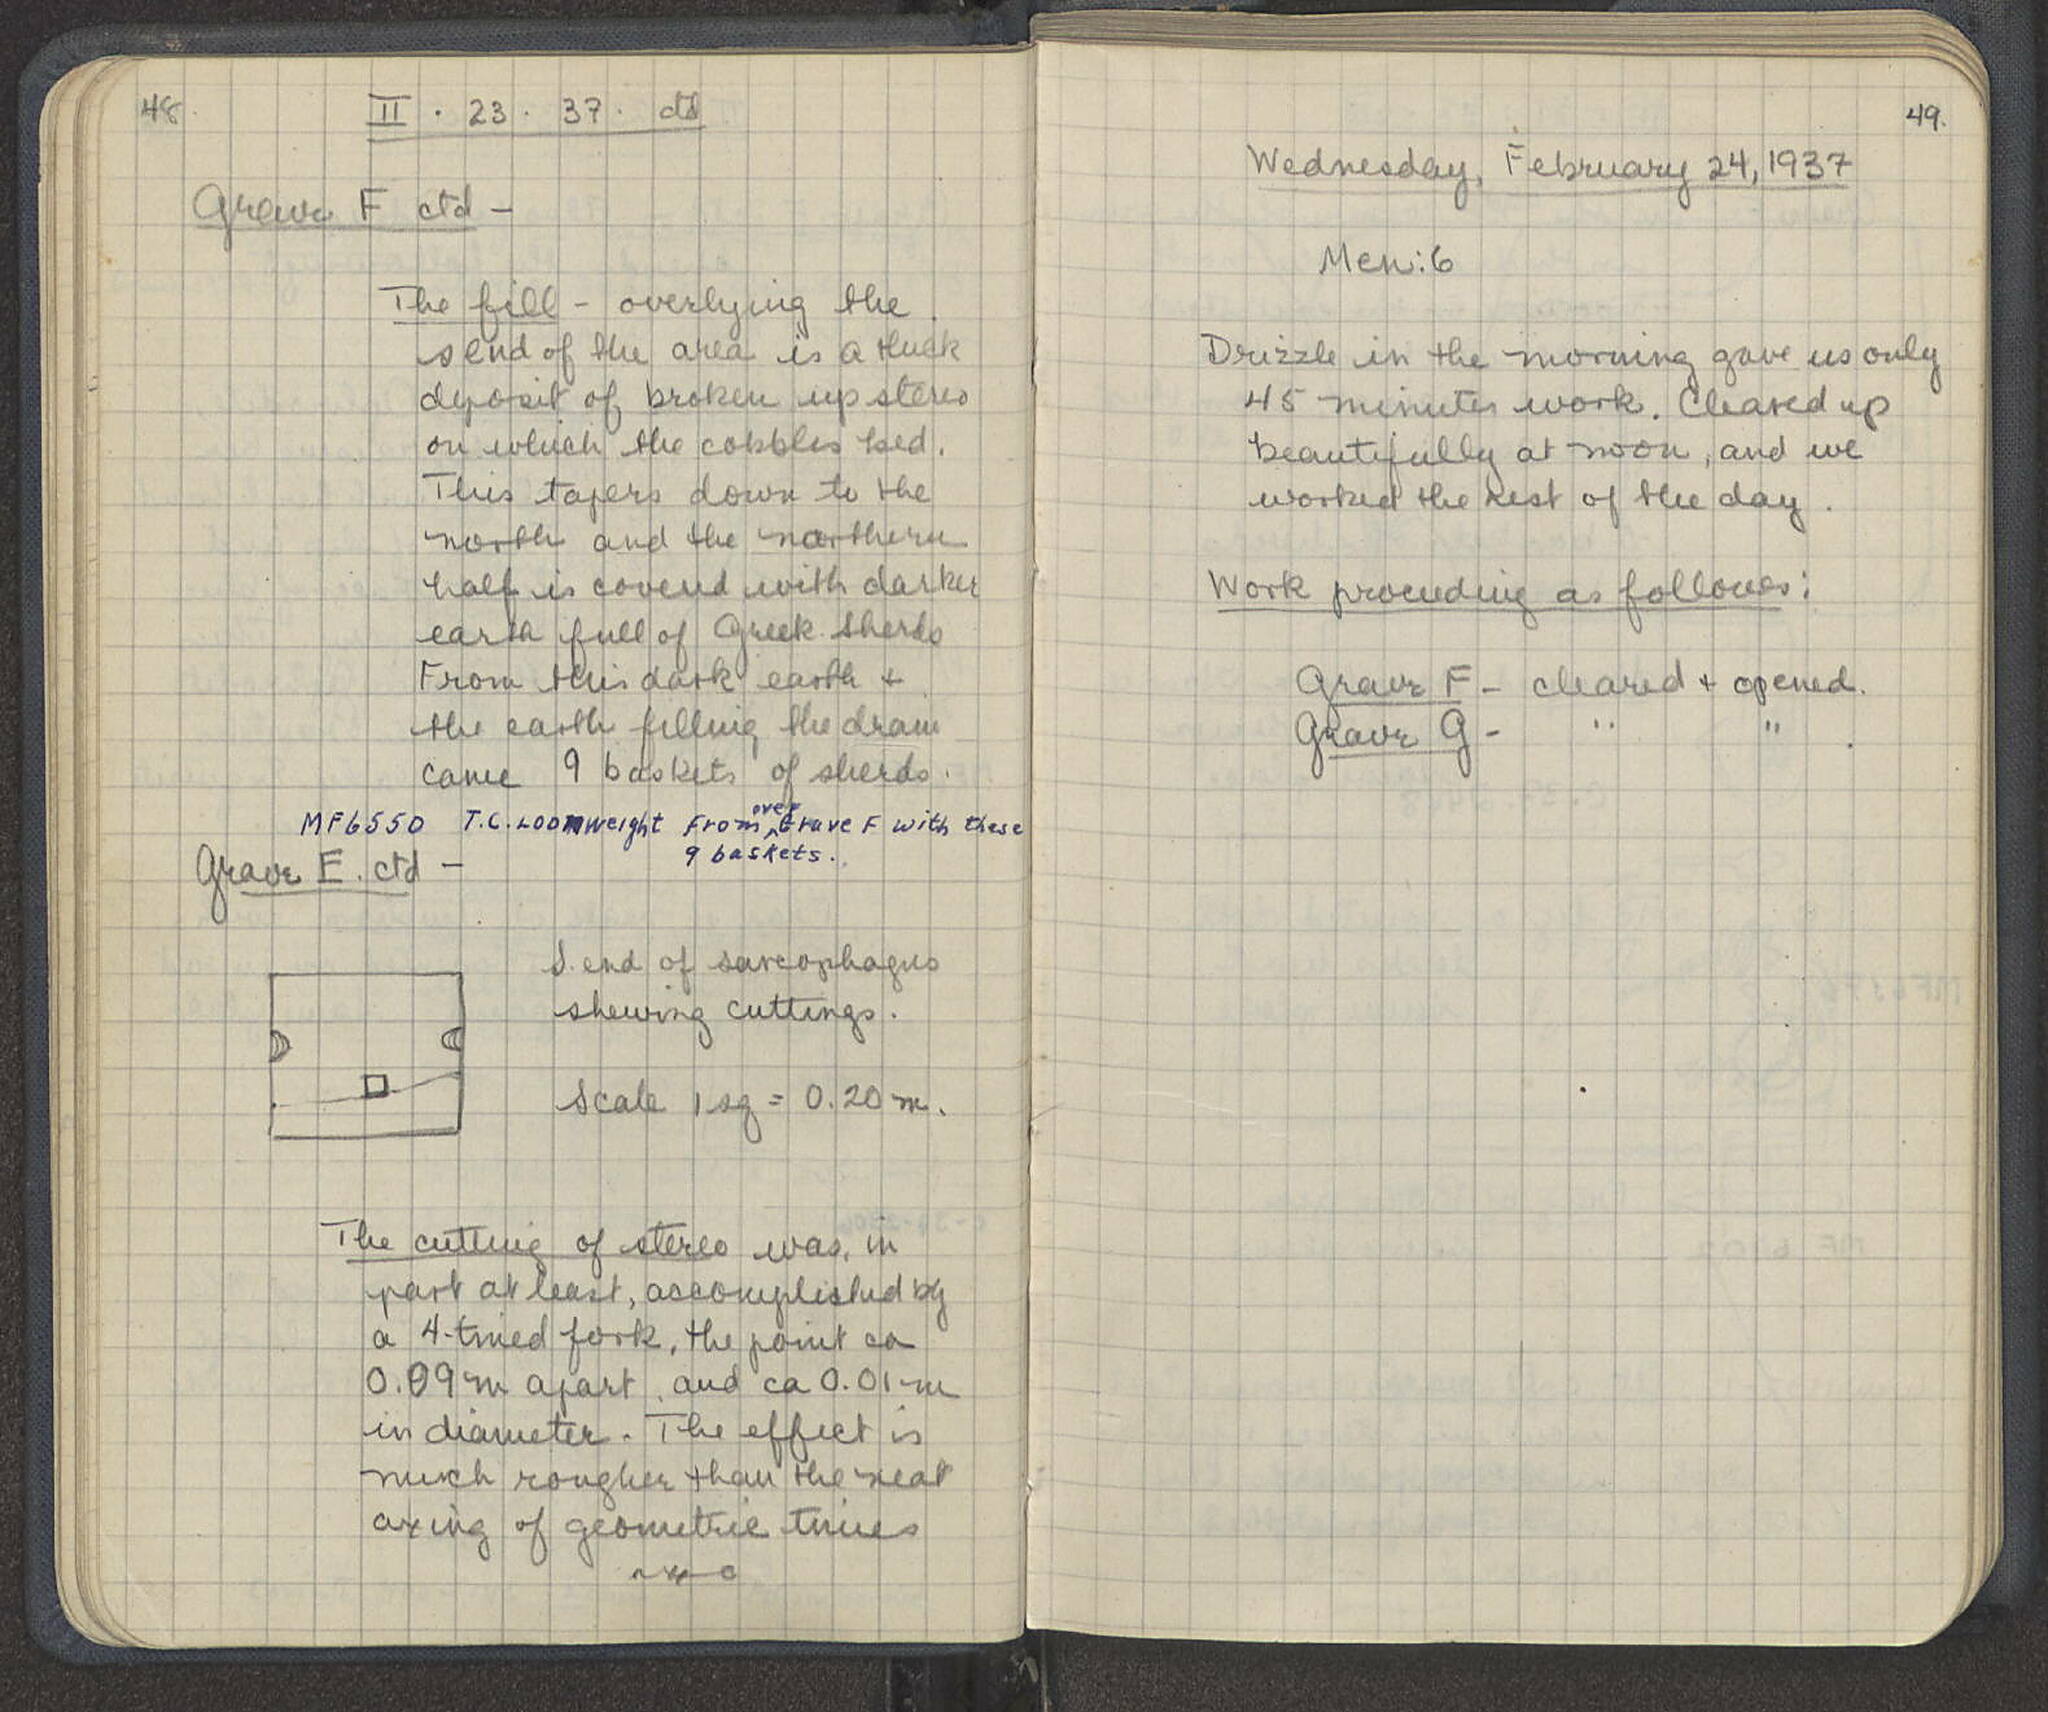 48
II · 23 · 37 · ctd
Grave F ctd -
The fill - overlying the
s end of the area is a thick
deposit of broken up stereo
on which the cobbles bed.
This tapers down to the
north and the northern
half is covered with darker
earth full of Greek sherds
From this dark earth +
the earth filling the dram
came 9 baskets of sherds.
MF6550 T.C. Loomweight From over Grave F with these
9 baskets.
Grave E. ctd -
S. end of sarcophagus
shewing cuttings.
Scale 1 sq = 0.20 m.
The cutting of stereo was, in
part at least, accomplished by
a 4-tined fork, the point ca
0.09 m apart, and ca 0.01 m
in diameter. The effect is
much rougher than the neat
axing of geometric times
49.
Wednesday, February 24, 1937
Men: 6
Drizzle in the morning gave us only
45 minutes work. Cleared up
beautifully at noon, and we
worked the rest of the day.
Work proceeding as follows:
Grave F - cleared + opened.
Grave G - " " .